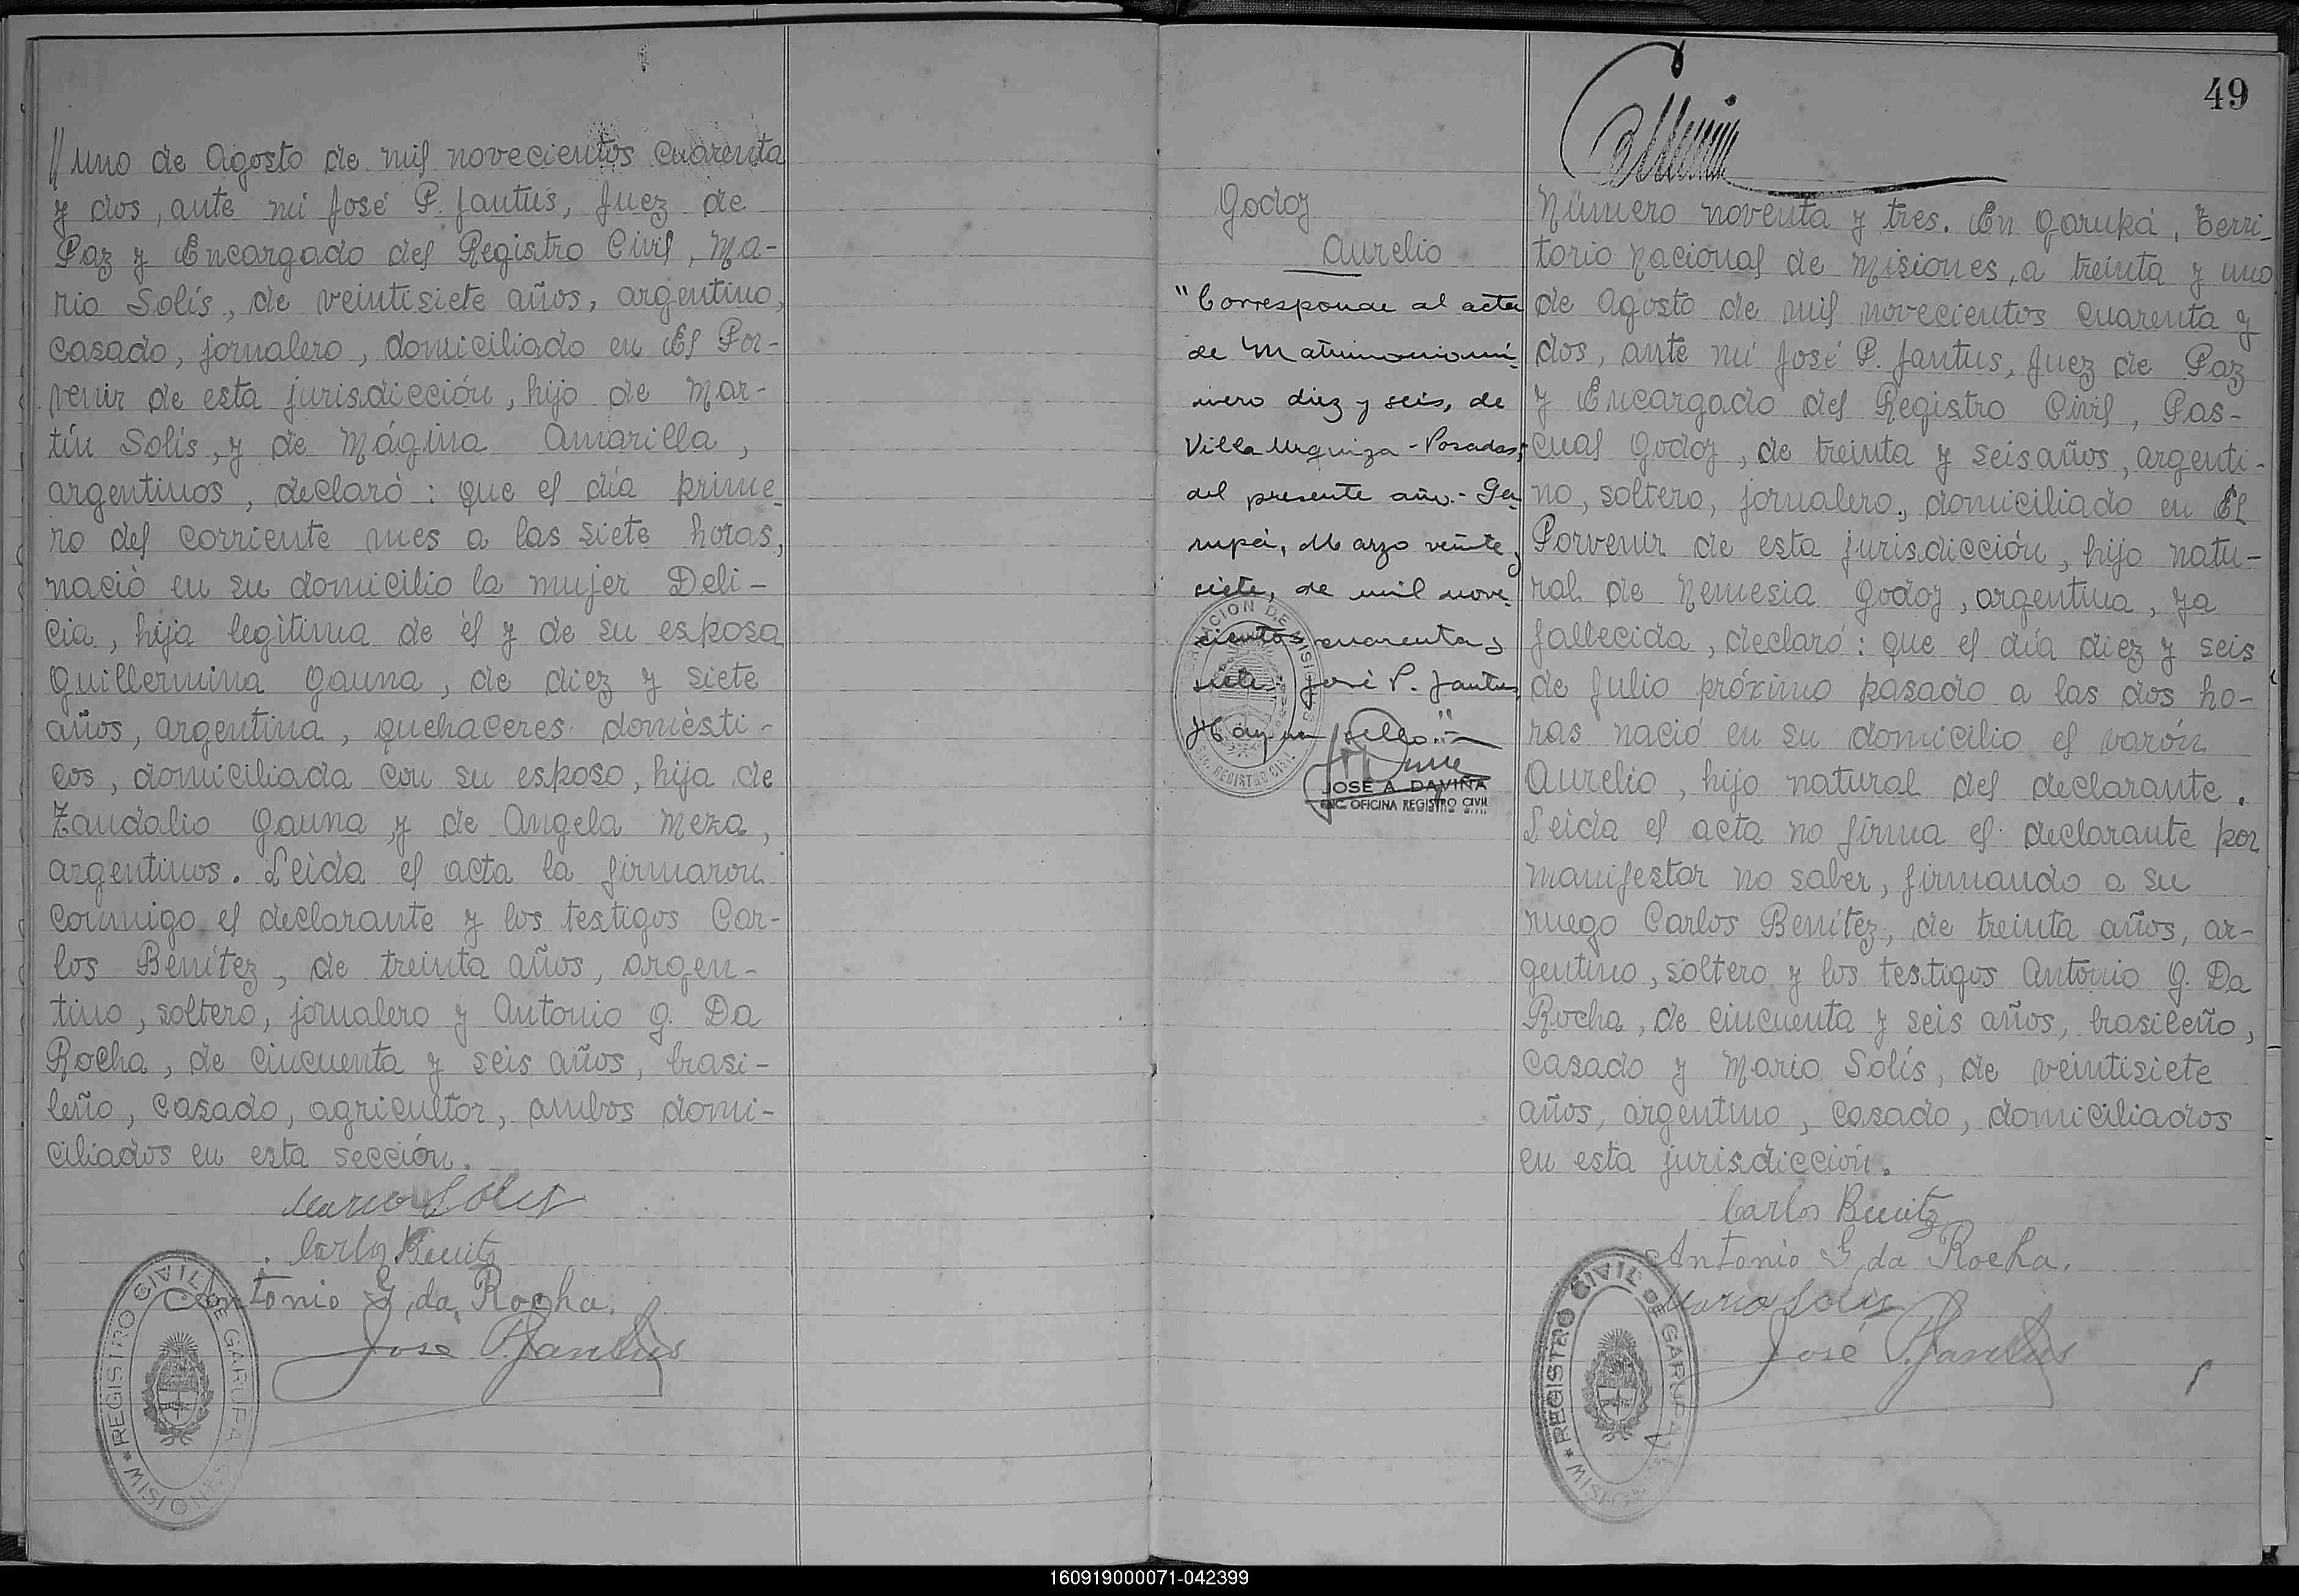 // uno de Agosto de mil novecientos cuarenta
y dos, ante mí José P. Jantus, Juez de
Paz y Encargado del Registro Civil, Ma-
rio Solís, de veintisiete años, argentino,
casado, jornalero, domiciliado en El Por-
venir de esta jurisdicción, hijo de Mar-
tín Solís, y de Mágina Amarilla,
argentinos, declaró: que el día prime-
ro del corriente mes a las siete horas,
nació en su domicilio la mujer Deli-
cia, hija legítima de él y de su esposa
Guillermina Gauna, de diez y siete
años, argentina, quehaceres domésti-
cos, domiciliada con su esposo, hija de
Zandalio Gauna y de Angela Meza,
argentinos. Leída el acta la firmaron
conmigo el declarante y los testigos Car-
los Benítez, de treinta años, argen-
tino, soltero, jornalero y Antonio G. Da
Rocha, de cincuenta y seis años, brasi-
leño, casado, agricultor, ambos domi-
ciliados en esta sección.
Mario Solis
Carlos Benitz
Antonio G. da Rocha.
José P. Jantus
REGISTRO CIVIL DE GARUPA * MISIONES
49
Godoy
Aurelio
"Corresponde al acta
de Matrimonio nú-
mero diez y seis, de
Villa Urquiza - Posadas,
del presente año.- Ga-
rupá, Marzo veinte y
siete, de mil nove-
cientos cuarenta y
siete. José P. Jantus
Hay un sello."-
JOSE A. DAVIÑA
ENC. OFICINA REGISTRO CIVIL
Número noventa y tres. En Garupá, Terri-
torio Nacional de Misiones, a treinta y uno
de Agosto de mil novecientos cuarenta y
dos, ante mí José P. Jantus, Juez de Paz
y Encargado del Registro Civil, Pas-
cual Godoy, de treinta y seis años, argenti-
no, soltero, jornalero, domiciliado en El
Porvenir de esta jurisdicción, hijo natu-
ral de Nemesia Godoy, argentina, ya
fallecida, declaró: que el día diez y seis
de Julio próximo pasado a las dos ho-
ras nació en su domicilio el varón
Aurelio, hijo natural del declarante.
Leída el acta no firma el declarante por
manifestar no saber, firmando a su
ruego Carlos Benítez, de treinta años, ar-
gentino, soltero y los testigos Antonio G. Da
Rocha, de cincuenta y seis años, brasileño,
casado y Mario Solís, de veintisiete
años, argentino, casado, domiciliados
en esta jurisdicción.
Carlos Benitz
Antonio G. da Rocha.
Mario Solis
José P. Jantus
REGISTRO CIVIL DE GARUPA * MISIONES
160919000071-042399